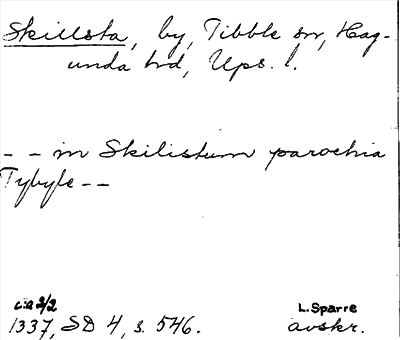 Skillsta, by, Tibble sn, Hag-
unda hd, Ups. l.
- - in Skilistum parochia
Tybyle - -
c:a 2/2
1337, SD 4, s. 546.
L. Sparre
avskr.